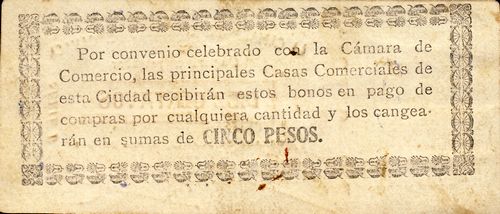 Por convenio celebrado con la Cámara de
Comercio, las principales Casas Comerciales de
esta Ciudad recibirán estos bonos en pago de
compras por cualquiera cantidad y los cangea-
rán en sumas de CINCO PESOS.